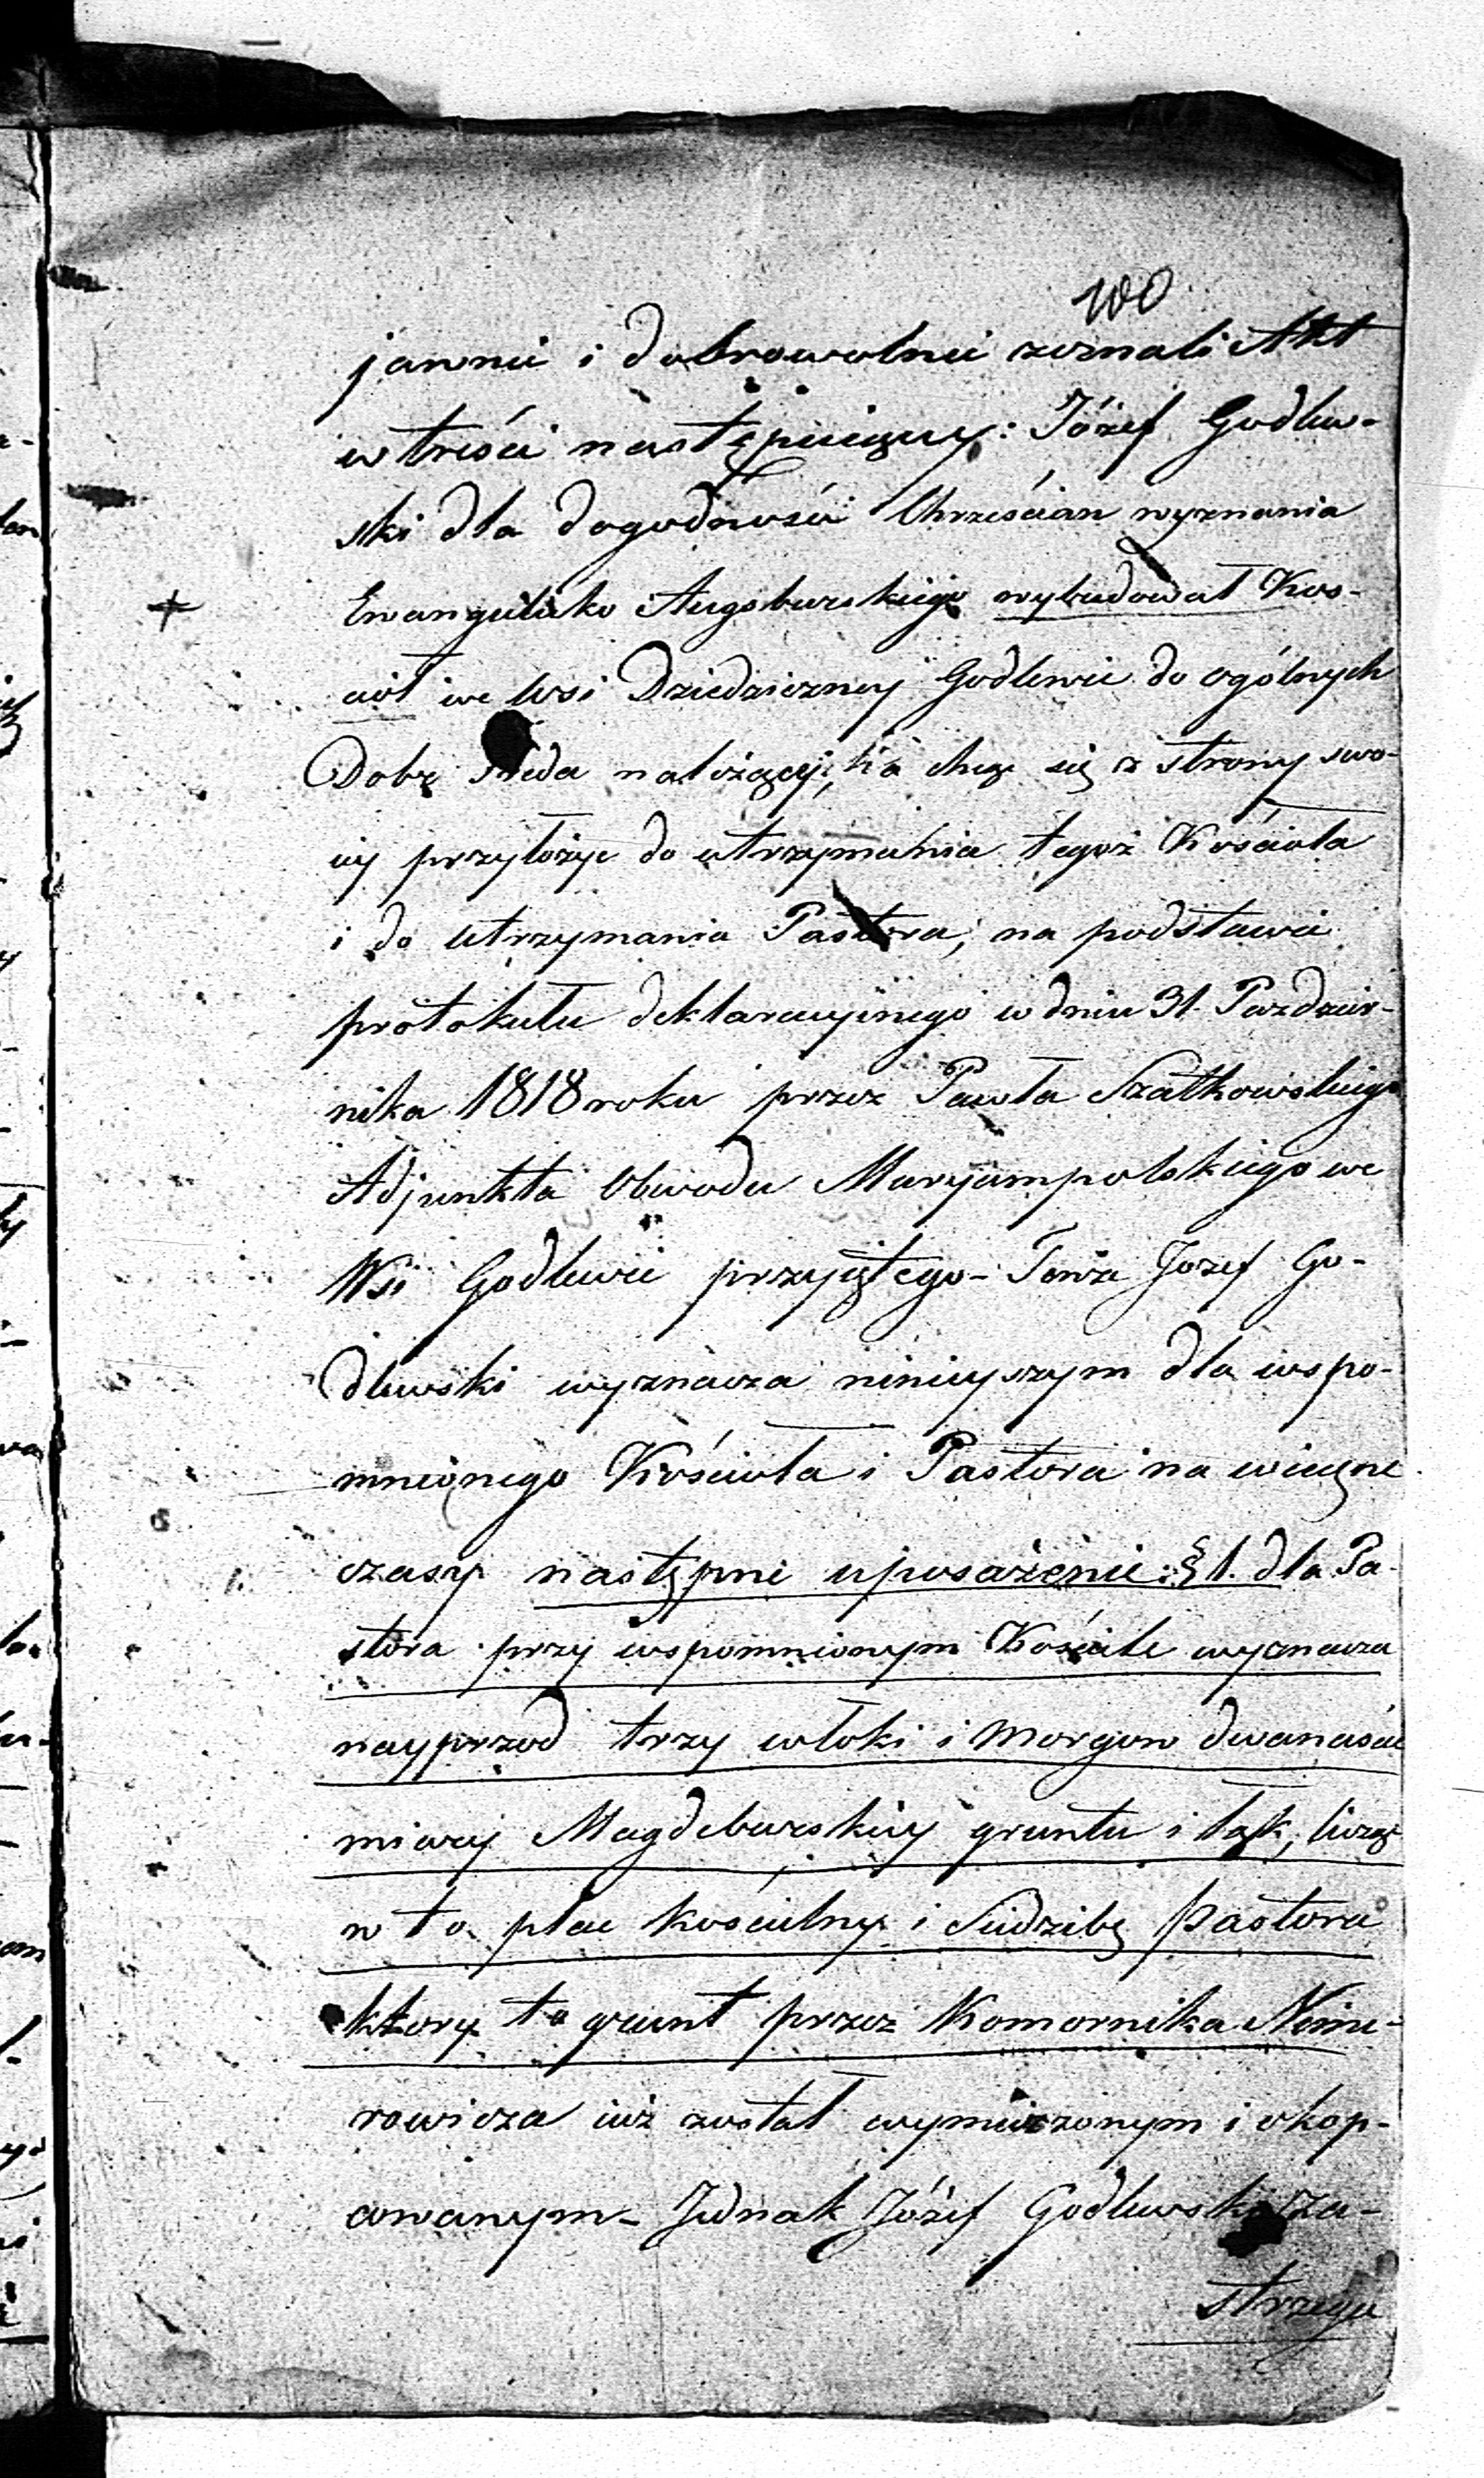 100
jawnie i dobrowolnie zeznali Akt
w treści następuiącey: Józef Godlew-
ski dla dogodności Chrześcian wyznania
Ewangelicko Augsburskiego wybudował Kos-
ciół we Wsi Dziedziczney Godlewie do ogólnych
Dobr należącey, a chcąc się z strony swo-
iey przyłożyc do utrzymania tegoż Kościoła
i do utrzymania Pastora, na podstawie
protokułu deklaracyinego w dniu 31. Pazdzier-
nika 1818 roku przez Pawła Szatkowskiego
Adjunkta Obwodu Maryampolskiego we
Wsi Godlewie przyiętego - Tenże Jozef Go-
dlewski wyznacza ninieyszym dla wspo-
mnionego Kościoła i Pastora na wieczne
czasy następne uposażenie: § 1. dla Pa-
stora przy wspomnionym Kościele wyznacza
nayprzod trzy włoki i morgow dwanaście
miary Magdeburskiey gruntu i łąk, licząc
w to plac kościelny i Siedzibę pastora
ktory to grunt przez Komornika Nieme-
rowicza iuż został wymierzonym i okop-
cowanym - Jednak Józef Godlewski za-
strzega